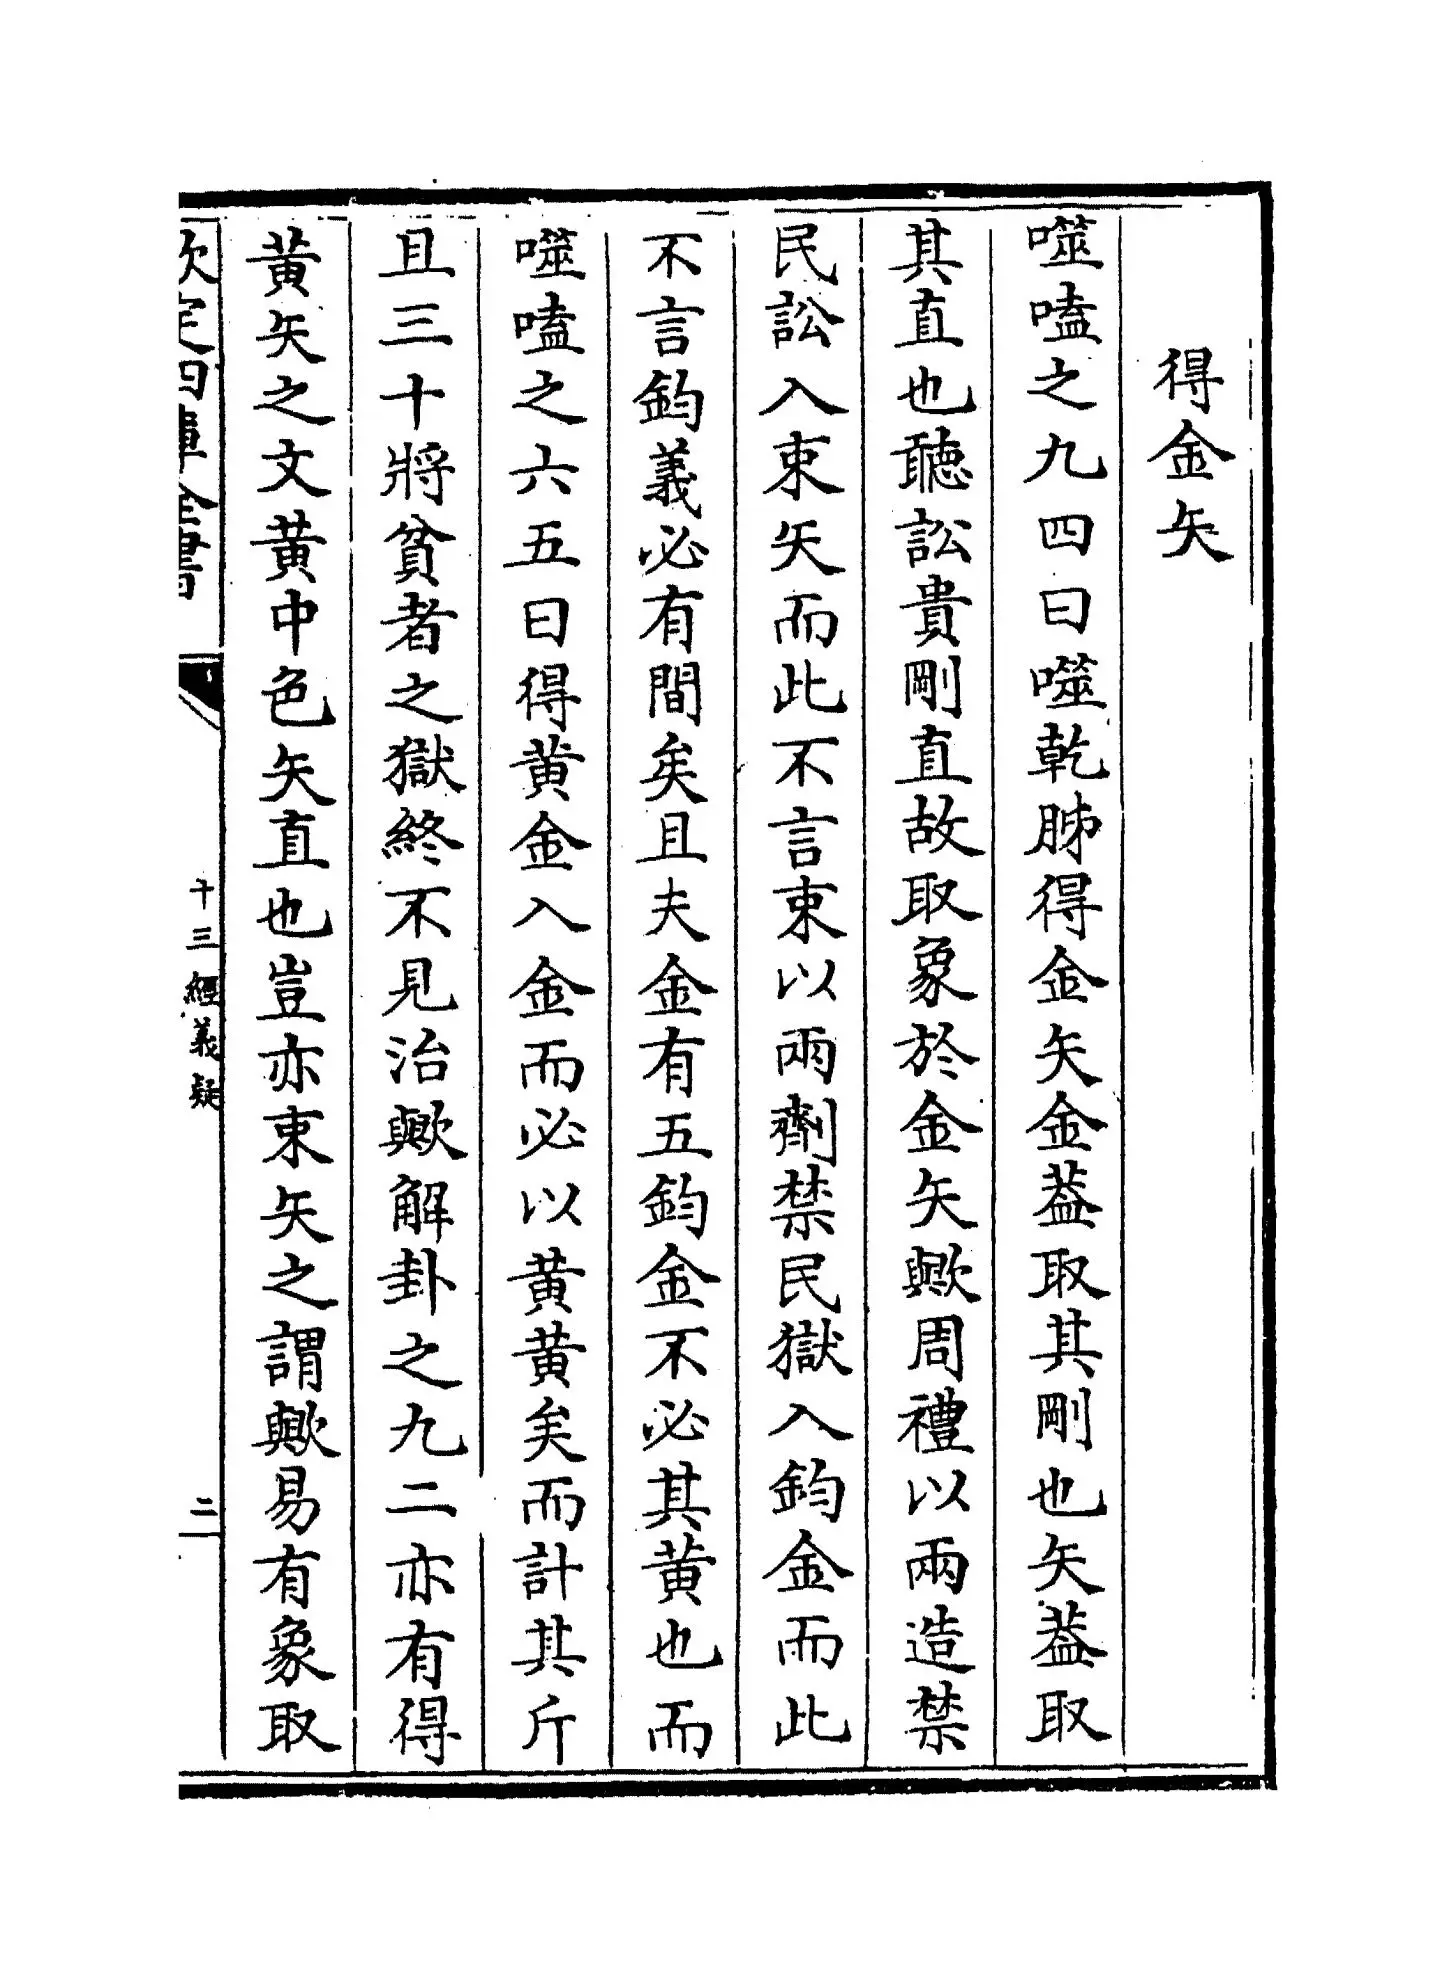 得金矢
噬嗑之九四曰噬乾胏得金矢金葢取其剛也矢葢取
其直也聽訟貴剛直故取象於金矢歟周禮以兩造禁
民訟入束矢而此不言束以兩劑禁民獄入鈞金而此
不言鈞義必有間矣且夫金有五鈞金不必其黃也而
噬嗑之六五曰得黃金入金而必以黃黃矣而計其斤
且三十將貧者之獄終不見治歟解卦之九二亦有得
黃矢之文黃中色矢直也豈亦束矢之謂歟易有象取
欽定四庫全書
十三經義疑
二